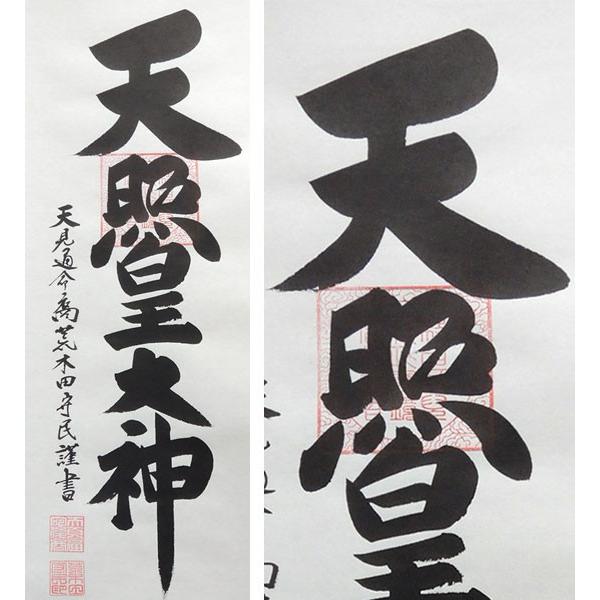 天照皇大神
天見通命裔荒木田守民謹書
天照皇